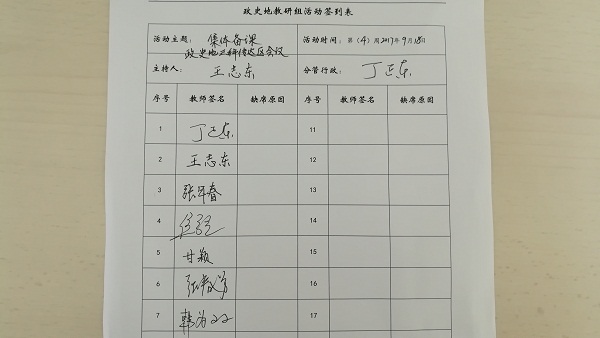 政史地教研组活动签到表
活动主题： 集体备课 活动时间：第（4）周2017年9月18日
政史地三科传达区会议
主持人： 王志东 分管行政： 丁正东
序号 教师签名 缺席原因 序号 教师签名 缺席原因
1 丁正东 11
2 王志东 12
3 张年春 13
4 14
5 甘颖 15
6 16
7 17